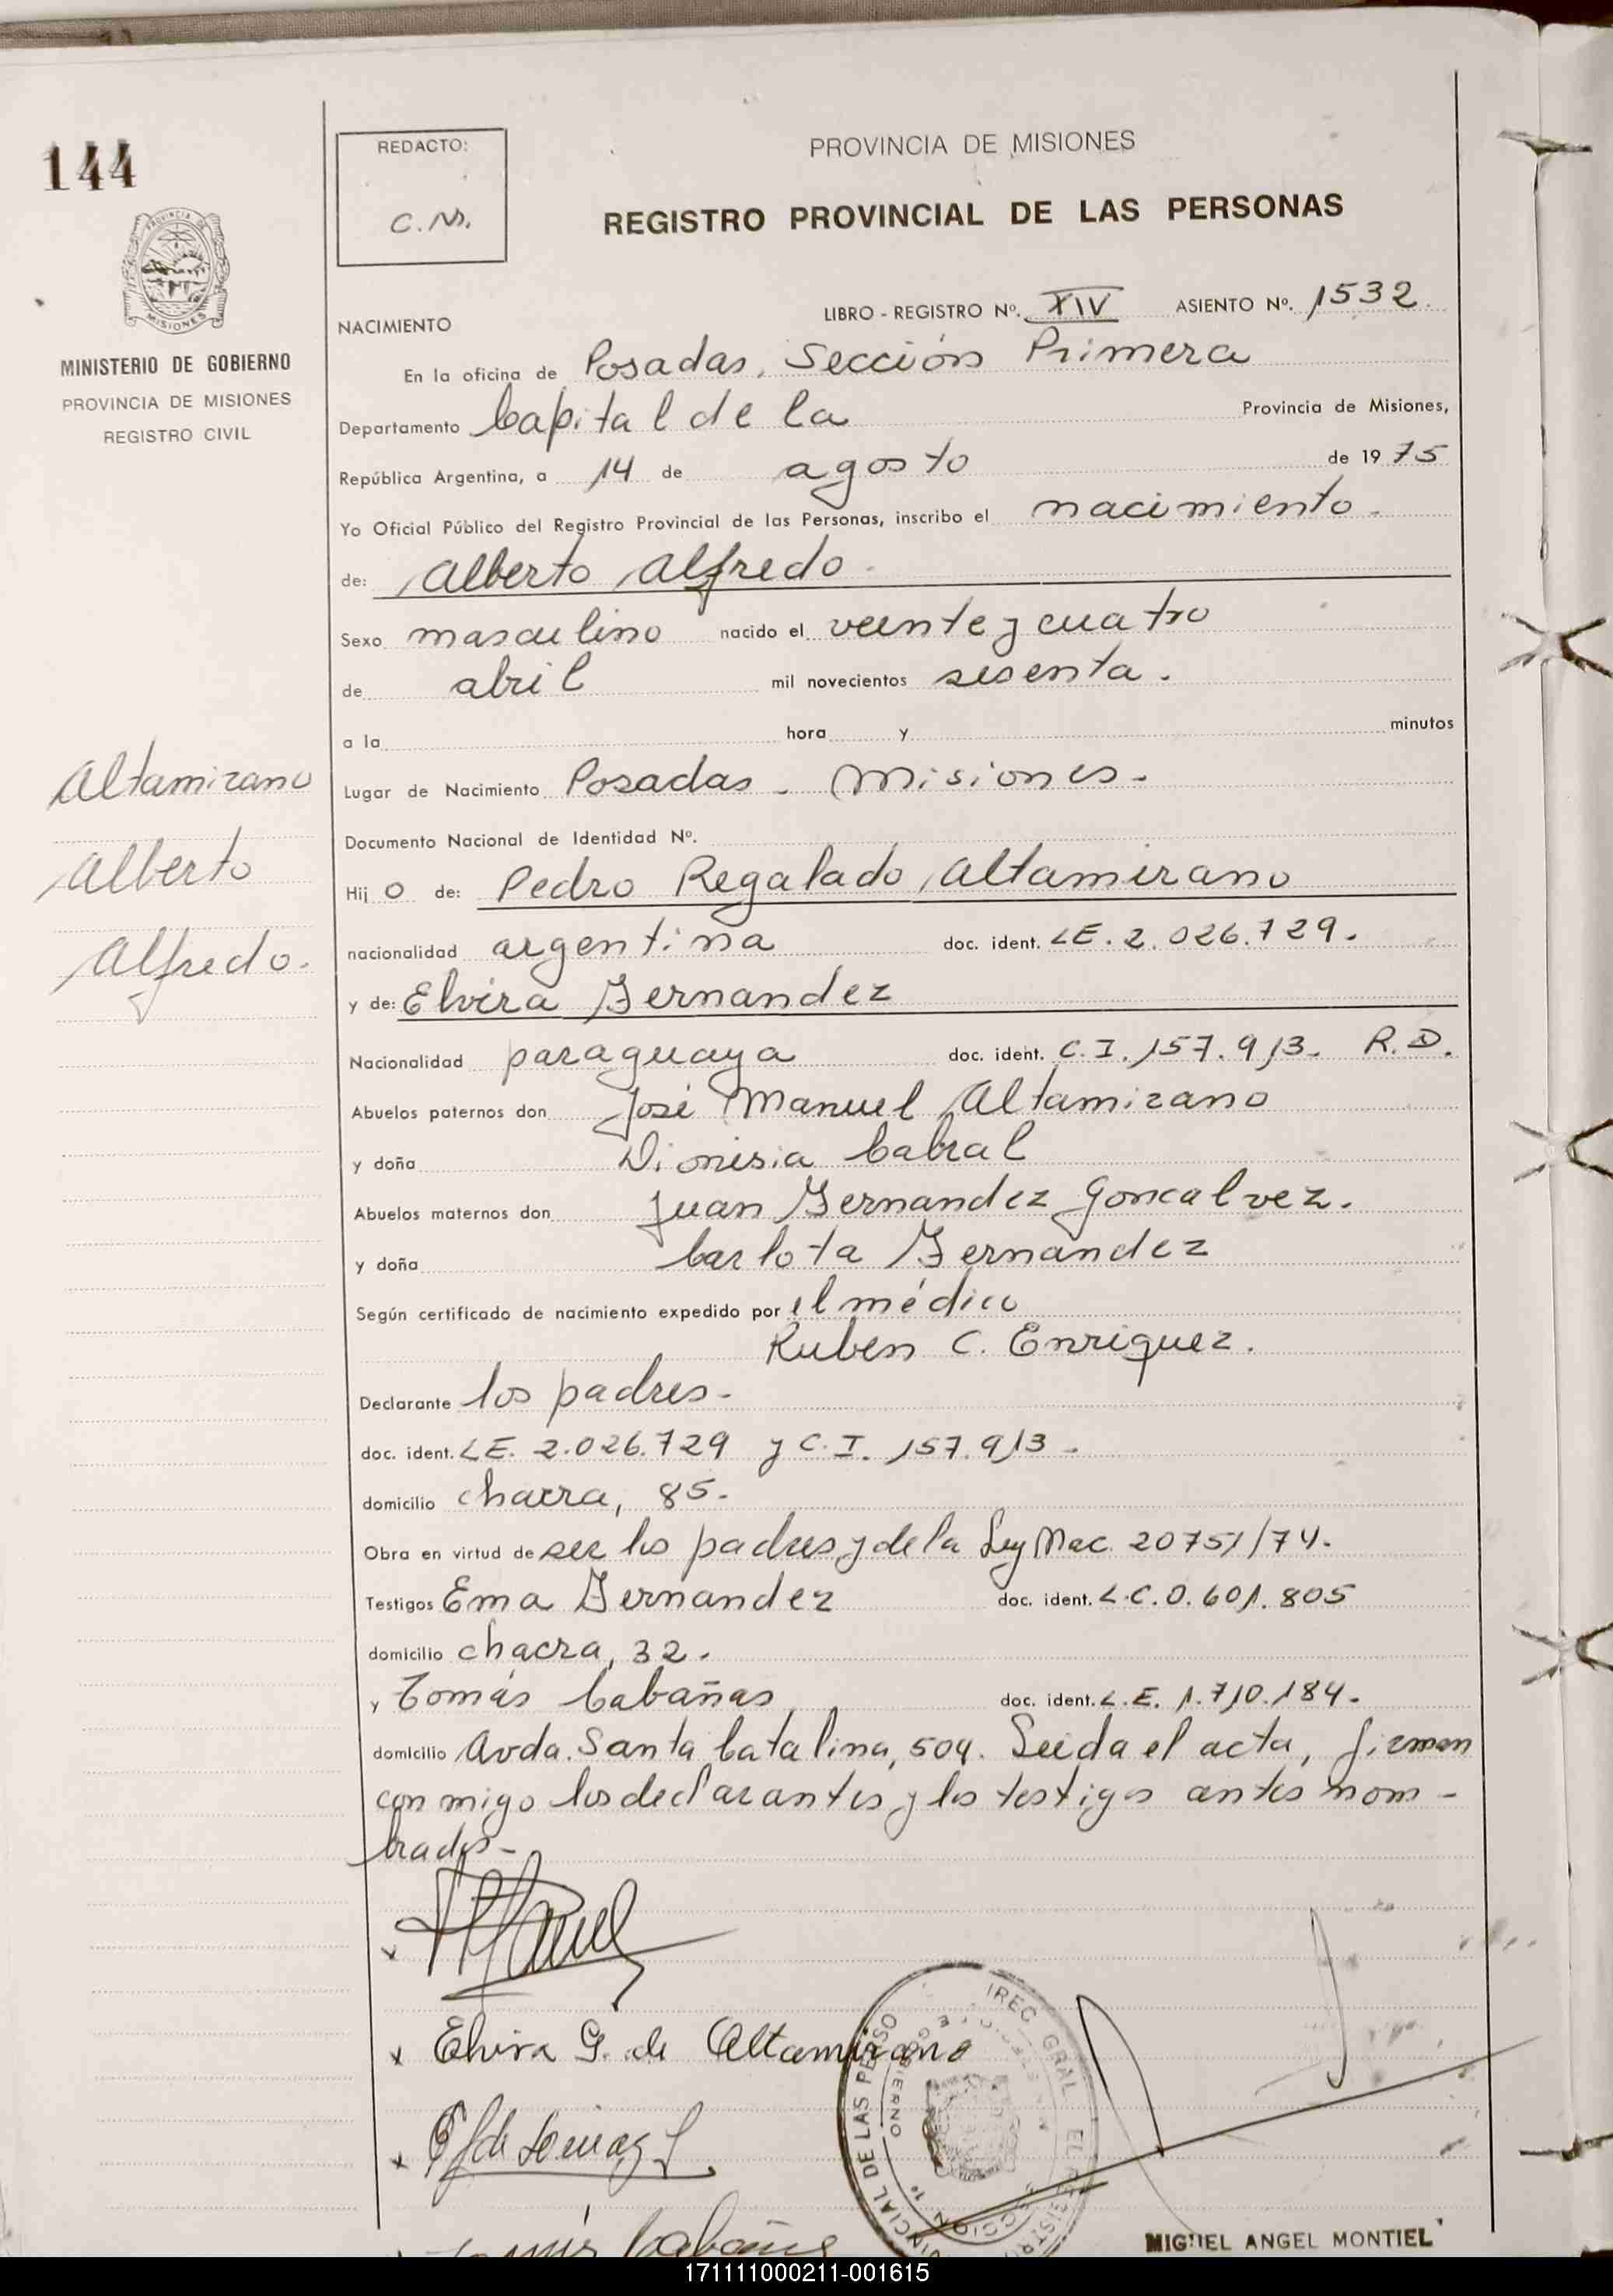 144
REDACTO:
C.N.
PROVINCIA DE MISIONES
REGISTRO PROVINCIAL DE LAS PERSONAS
MISIONES
MINISTERIO DE GOBIERNO
PROVINCIA DE MISIONES
REGISTRO CIVIL
NACIMIENTO
LIBRO - REGISTRO Nº. XIV ASIENTO Nº. 1532.
En la oficina de Posadas, Sección Primera
Departamento Capital de la Provincia de Misiones,
República Argentina, a 14 de agosto de 1975
Yo Oficial Público del Registro Provincial de las Personas, inscribo el nacimiento.
de: Alberto Alfredo.
Sexo masculino nacido el veinte y cuatro
de abril mil novecientos sesenta.
a la hora y minutos
Altamirano
Alberto
Alfredo.
Lugar de Nacimiento Posadas - Misiones.
Documento Nacional de Identidad Nº.
Hijo de: Pedro Regalado Altamirano
nacionalidad argentina doc. ident. LE. 2.026.729.
y de: Elvira Fernandez
Nacionalidad paraguaya doc. ident. C.I. 157.913. R.D.
Abuelos paternos don José Manuel Altamirano
y doña Dionisia Cabral
Abuelos maternos don Juan Fernandez Goncalvez.
y doña Carlota Fernandez
Según certificado de nacimiento expedido por el médico
Ruben C. Enriquez.
Declarante los padres.
doc. ident. LE. 2.026.729 y C.I. 157.913.
domicilio chacra, 85.
Obra en virtud de ser los padres y de la Ley Nac. 20751/74.
Testigos Ema Fernandez doc. ident. L.C. 0.601.805
domicilio chacra, 32.
y Tomás Cabañas doc. ident. L.E. 1.710.184.
domicilio Avda. Santa Catalina, 504. Leida el acta, firman
conmigo los declarantes y los testigos antes nom-
brados-
Elvira G. de Altamirano
Tomás Cabañas
MIGUEL ANGEL MONTIEL
171111000211-001615